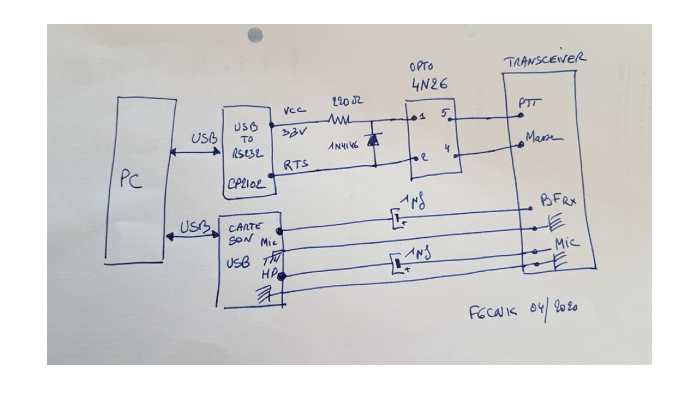 TRANSCEIVER
OPTO
4N26
PC
USB
USB
TO
RS232
CP2102
VCC
3,3V
220Ω
1N4148
RTS
1
5
2
4
PTT
Masse
USB
CARTE
SON
USB
Mic
HP
1Nf
+
1Nf
+
BF Rx
Mic
04/2020